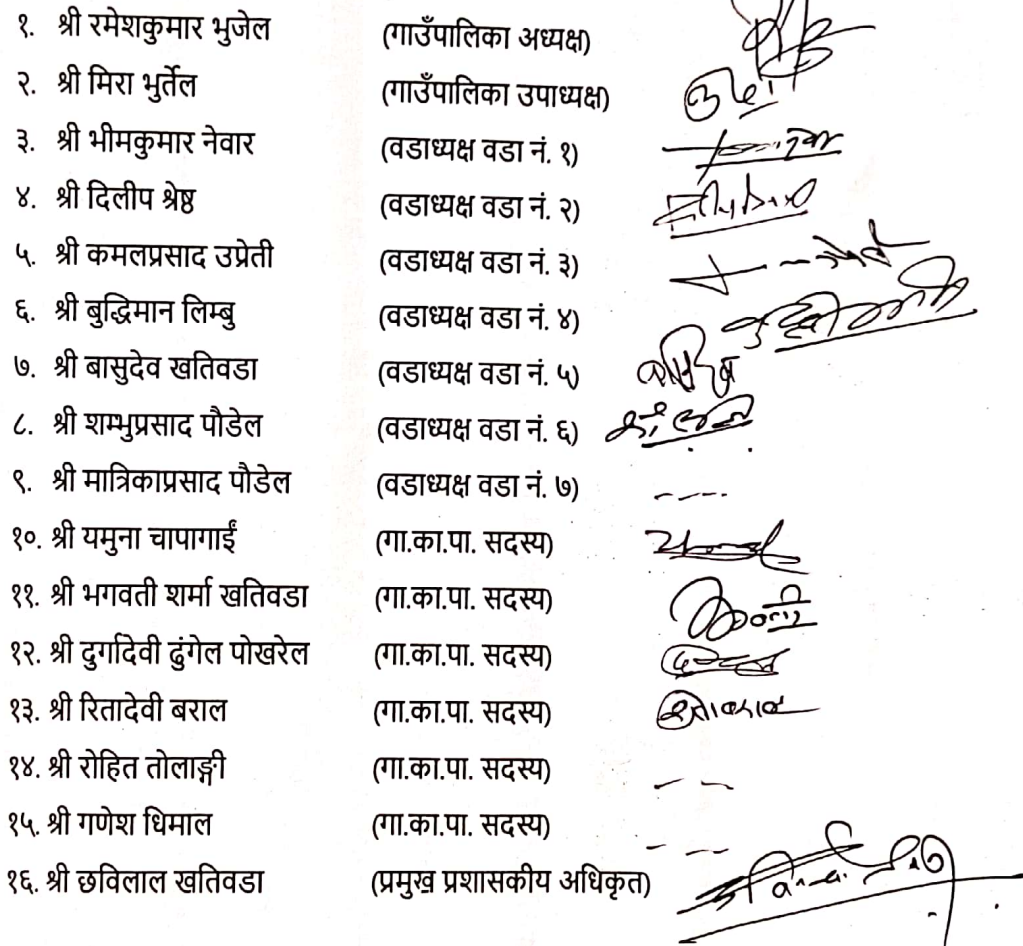 १. श्री रमेशकुमार भुजेल (गाउँपालिका अध्यक्ष)
२. श्री मिरा भुर्तेल (गाउँपालिका उपाध्यक्ष)
३. श्री भीमकुमार नेवार (वडाध्यक्ष वडा नं. १)
४. श्री दिलीप श्रेष्ठ (वडाध्यक्ष वडा नं. २)
५. श्री कमलप्रसाद उप्रेती (वडाध्यक्ष वडा नं. ३)
६. श्री बुद्धिमान लिम्बु (वडाध्यक्ष वडा नं. ४)
७. श्री बासुदेव खतिवडा (वडाध्यक्ष वडा नं. ५)
८. श्री शम्भुप्रसाद पौडेल (वडाध्यक्ष वडा नं. ६)
९. श्री मात्रिकाप्रसाद पौडेल (वडाध्यक्ष वडा नं. ७) ----
१०. श्री यमुना चापागाईं (गा.का.पा. सदस्य)
११. श्री भगवती शर्मा खतिवडा (गा.का.पा. सदस्य)
१२. श्री दुर्गादेवी ढुंगेल पोखरेल (गा.का.पा. सदस्य)
१३. श्री रितादेवी बराल (गा.का.पा. सदस्य)
१४. श्री रोहित तोलाङ्गी (गा.का.पा. सदस्य) -- 
१५. श्री गणेश धिमाल (गा.का.पा. सदस्य) ---
१६. श्री छविलाल खतिवडा (प्रमुख प्रशासकीय अधिकृत)